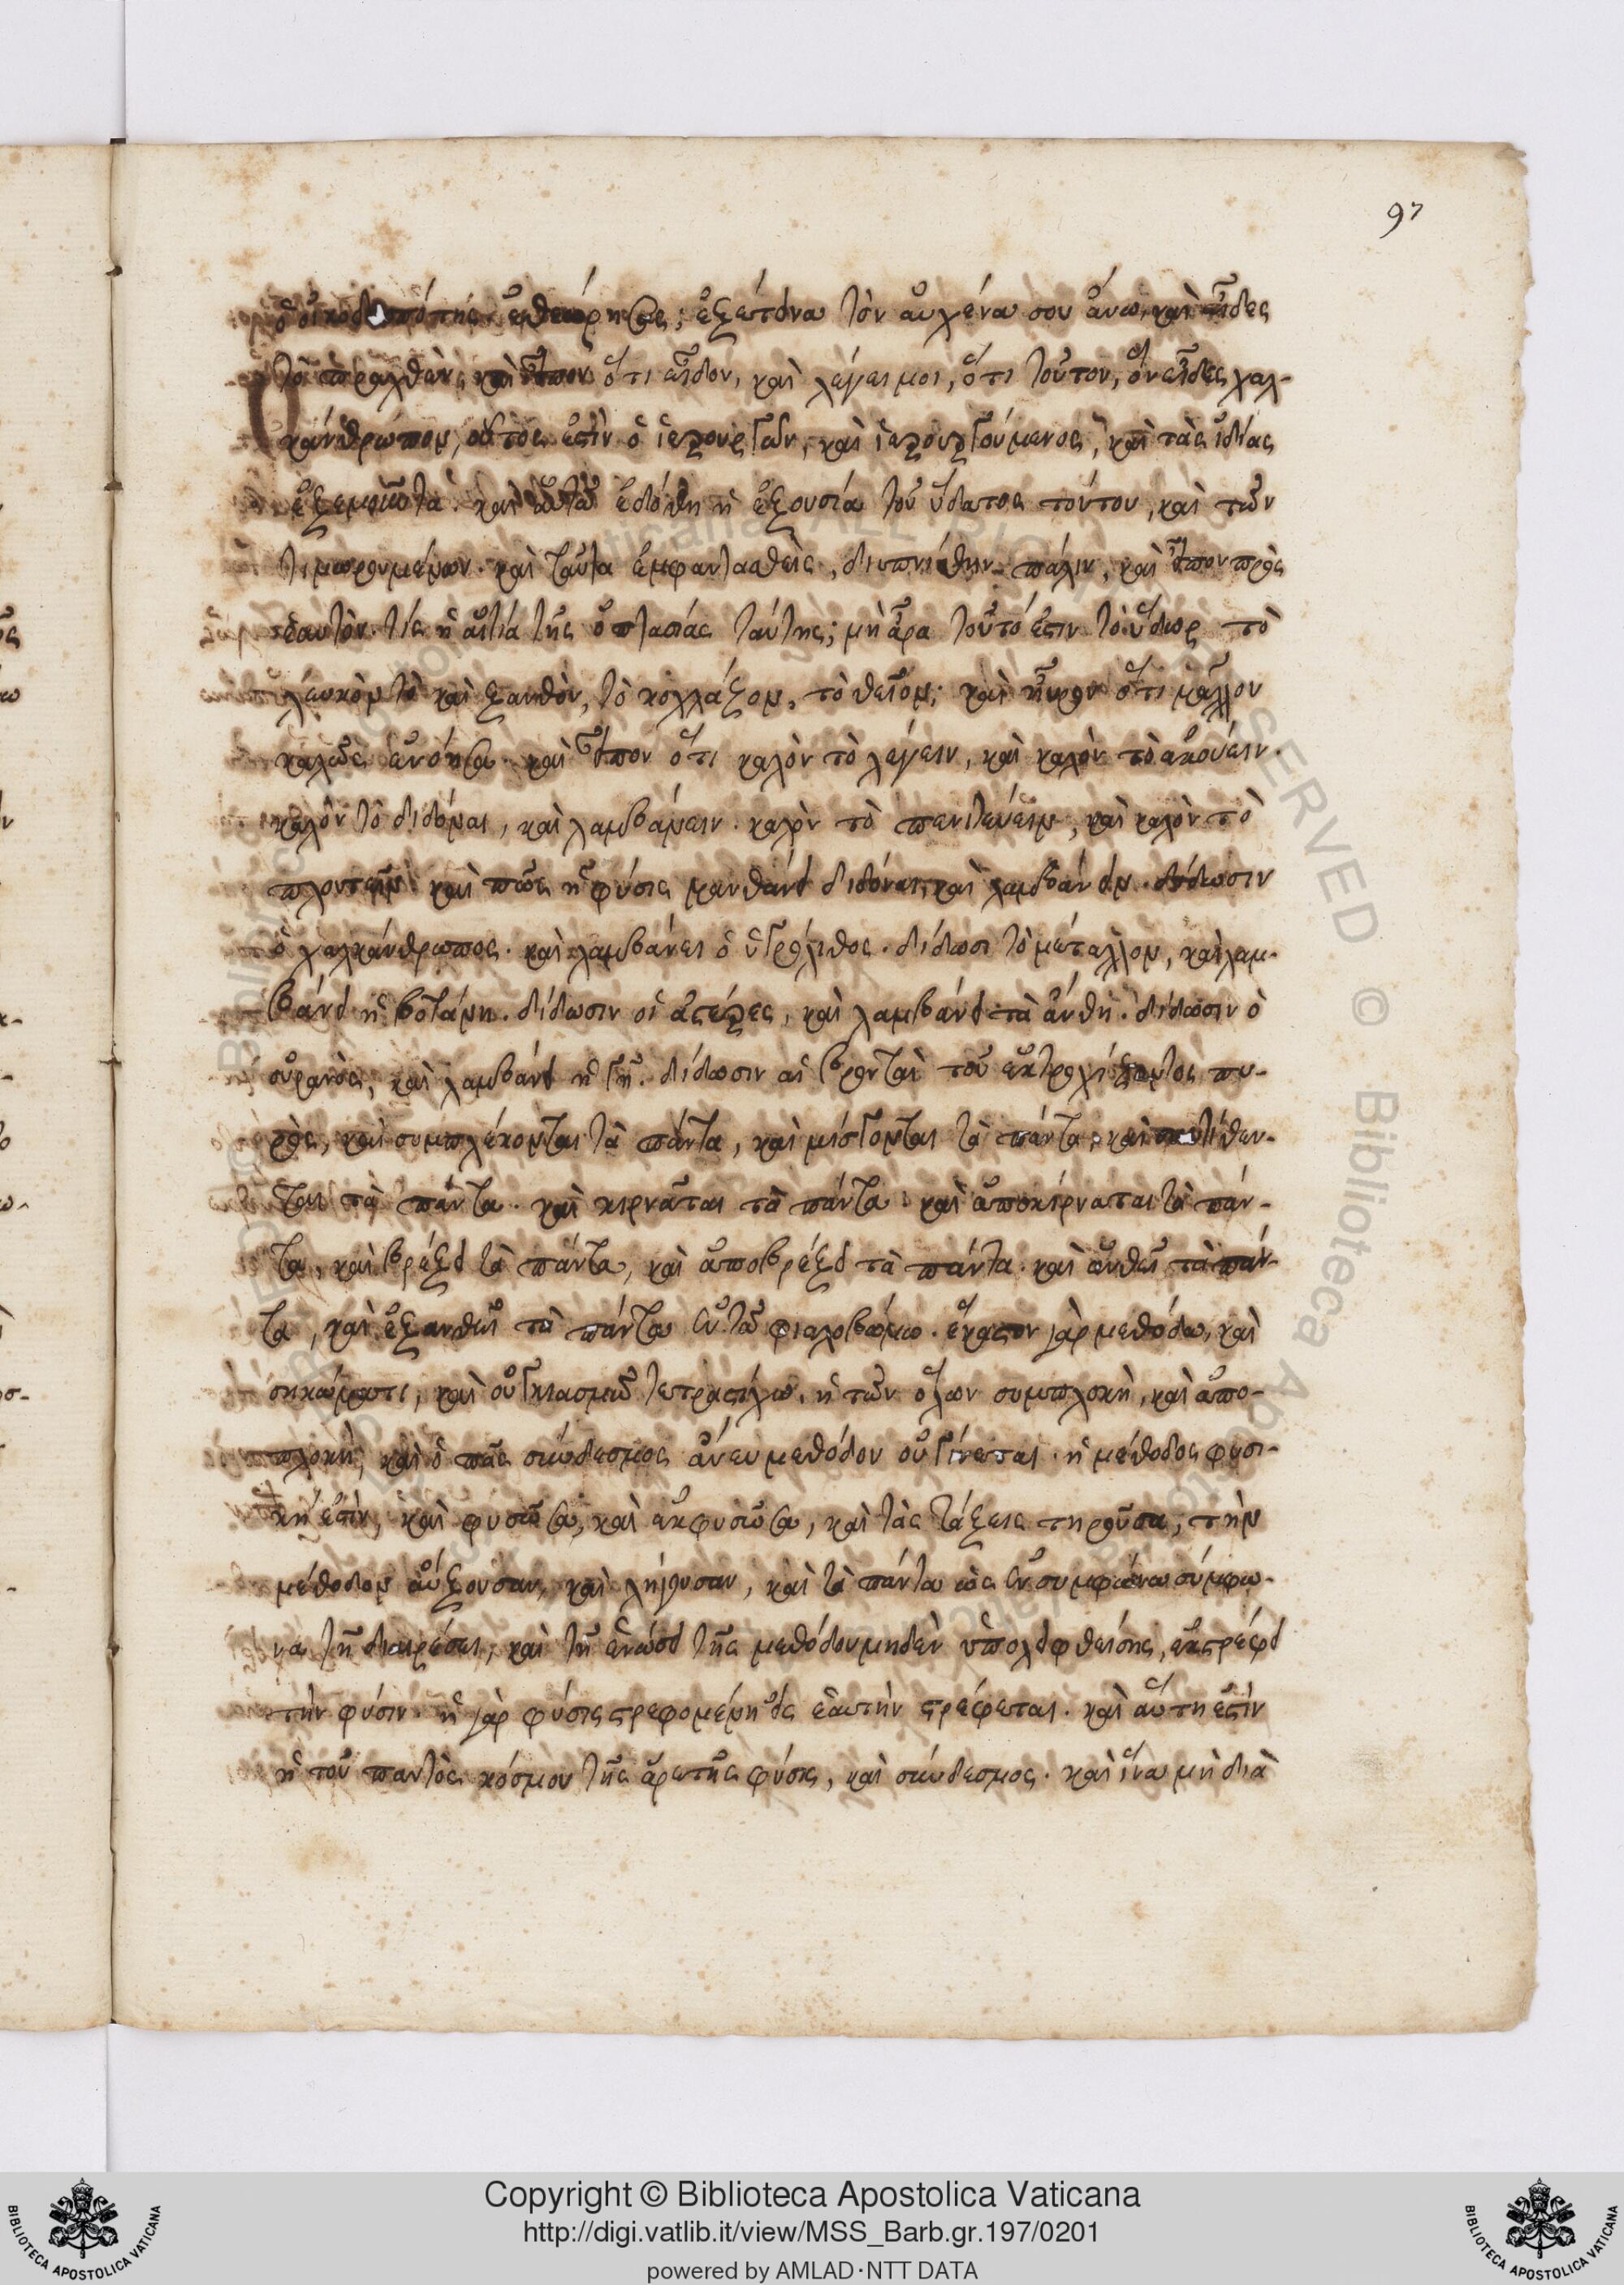 97
ὁ οἰκοδεσπότης ἐθεώρησας; ἐξέτεινα τὸν αὐχένα σου ἄνω, καὶ εἶδες
τὸ πραχθέν; καὶ εἶπον ὅτι εἶδον, καὶ λέγει μοι, ὅτι τοῦτον, ὃν εἶδες χαλ-
κάνθρωπον, οὗτός ἐστιν ὁ ἱερουργῶν, καὶ ἱερουργούμενος, καὶ τὰς ἰδίας
ἐξεμοῦντα. καὶ αὐτῷ ἐδόθη ἡ ἐξουσία τοῦ ὕδατος τούτου, καὶ τῶν
τιμωρουμένων. καὶ ταῦτα ἐμφαντασθεὶς, διυπνιάθην πάλιν, καὶ εἶπον πρὸς
ἑαυτὸν. τίς ἡ αἰτία τῆς ὀπτασίας ταύτης; μὴ ἆρα τοῦτό ἐστιν τὸ ὕδωρ τὸ
λευκὸν τὸ καὶ ξανθὸν, τὸ κολλάζον, τὸ θεῖον; καὶ εὗρον ὅτι μᾶλλον
καλῶς ἐνόησα. καὶ εἶπον ὅτι καλὸν τὸ λέγειν, καὶ καλὸν τὸ ἀκούειν.
καλὸν τὸ διδόναι, καὶ λαμβάνειν. καλὸν τὸ πενιτεύειν, καὶ καλὸν τὸ
πλουτεῖν. καὶ πῶς ἡ φύσις μανθάνει διδόναι, καὶ λαμβάνειν. δίδωσιν
ὁ χαλκάνθρωπος. καὶ λαμβάνει ὁ ὑγρόλιθος. δίδωσι τὸ μέταλλον, καὶ λαμ-
βάνει ἡ βοτάνη. δίδωσιν οἱ ἀστέρες, καὶ λαμβάνει τὰ ἄνθη. δίδωσιν ὁ
οὐρανὸς, καὶ λαμβάνει ἡ γῆ. δίδωσιν αἱ βρονταὶ τοῦ ἐκτροχίζοντος πυ-
ρὸς, καὶ συμπλέκονται τὰ πάντα, καὶ μίσγονται τὰ πάντα, καὶ συντίθεν-
ται τὰ πάντα. καὶ κιρνᾶται τὰ πάντα. καὶ ἀποκίρναται τὰ πάν-
τα, καὶ βρέξει τὰ πάντα, καὶ ἀποβρέξει τὰ πάντα. καὶ ἀνθεῖ τὰ πάν-
τα, καὶ ἐξανθεῖ τὰ πάντα ἐν τῷ φιαλοβώμω. ἕκαστον γὰρ μεθόδω, καὶ
σηκώματι, καὶ οὐγκιασμῷ τετραστύλω. ἡ τῶν ὅλων συμπλοκὴ, καὶ ἀπο-
πλοκὴ, καὶ ὁ πᾶς σύνδεσμος ἄνευ μεθόδου οὐ γίνεται. ἡ μέθοδος φυσι-
κή ἐστιν, καὶ φυσῶσα, καὶ ἐκφυσῶσα, καὶ τὰς τάξεις τηροῦσα, τὴν
μέθοδον αὔξουσαν, καὶ λήγουσαν, καὶ τὰ πάντα ὡς ἐν συμφώνω σύμφω-
να τῇ διαιρέσει, καὶ τῇ ἑνώσει τῆς μεθόδου μηδὲν ὑπολειφθείσης, ἐκστρέφει
τὴν φύσιν. ἡ γὰρ φύσις στρεφομένη εἰς ἑαυτὴν στρέφεται. καὶ αὕτη ἐστὶν
ἡ τοῦ παντὸς κόσμου τῆς ἀρετῆς φύσις, καὶ σύνδεσμος. καὶ ἵνα μὴ διὰ
Copyright © Biblioteca Apostolica Vaticana
http://digi.vatlib.it/view/MSS_Barb.gr.197/0201
powered by AMLAD·NTT DATA